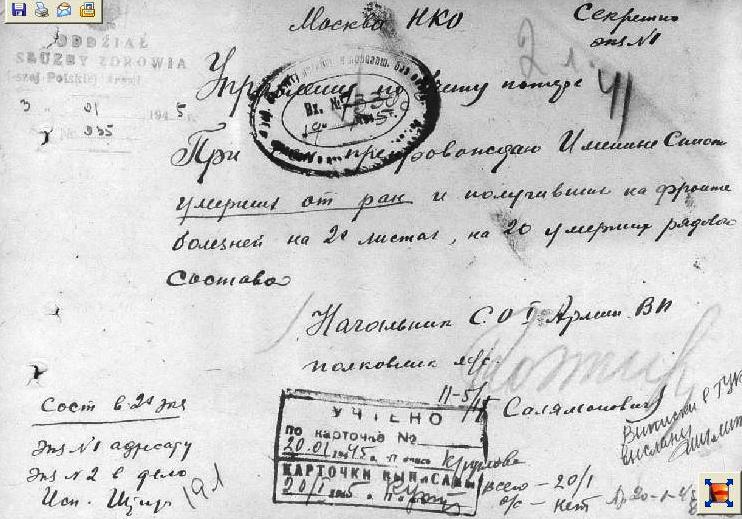 Москва НКО
Секретно
экз №1
ODDZIAŁ
SŁUŻBY ZDROWIA
Polskiej Armji
3 01 1945 r.
No. 035
2 л.
Управление по учету потерь
Вх. №
При препровождаю Именные Списки
умерших от ран и получивших на фронте
болезней на 2х листах, на 20 умерших рядового
состава
Начальник С.О I Армии ВП
полковник м/с
Салямонович
Сост в 2х экз
экз №1 адресату
экз №2 в дело
Исп.
191
УЧТЕНО
по карточке No
20.01.1945 г.
Круглова
КАРТОЧКИ ВЫПИСАНЫ
20/I 1945 г.
всего - 20/1
о/с - нет
Выписки в ГУК
высланы